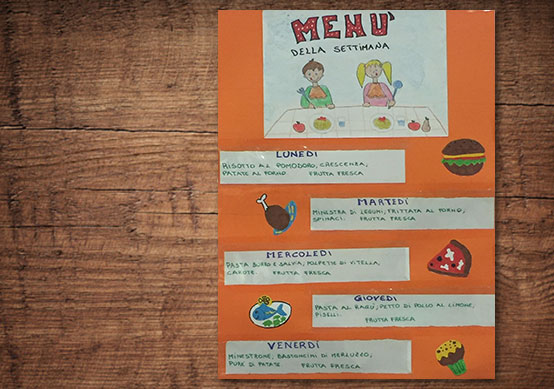 MENU'
DELLA SETTIMANA
LUNEDÌ
RISOTTO AL POMODORO, CRESCENZA,
PATATE AL FORNO. FRUTTA FRESCA
MARTEDÍ
MINESTRA DI LEGUMI, FRITTATA AL FORNO,
SPINACI. FRUTTA FRESCA
MERCOLEDÌ
PASTA BURRO E SALVIA, POLPETTE DI VITELLA,
CAROTE. FRUTTA FRESCA
GIOVEDÌ
PASTA AL RAGÙ, PETTO DI POLLO AL LIMONE,
PISELLI. FRUTTA FRESCA
VENERDÌ
MINESTRONE, BASTONCINI DI MERLUZZO,
PURE DI PATATE. FRUTTA FRESCA